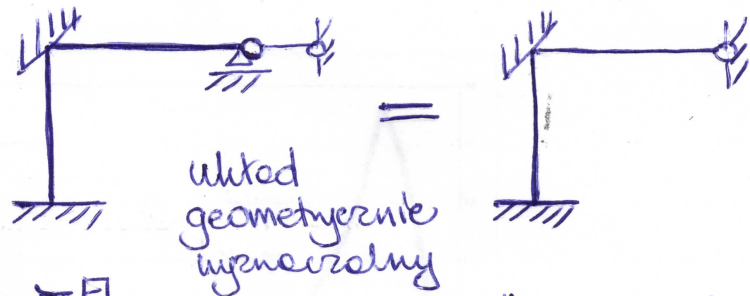 układ
geometrycznie
wyznaczalny